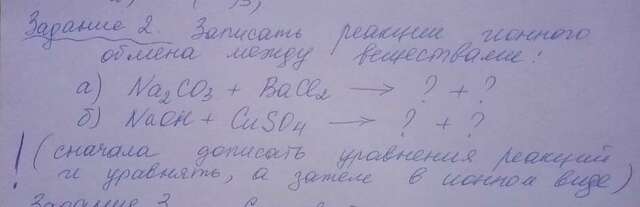 Задание 2. Записать реакции ионного
обмена между веществами:
а) Na₂CO₃ + BaCl₂ → ? + ?
б) NaOH + CuSO₄ → ? + ?
! (сначала дописать уравнения реакций
и уравнять, а затем в ионном виде)
Задание 3.